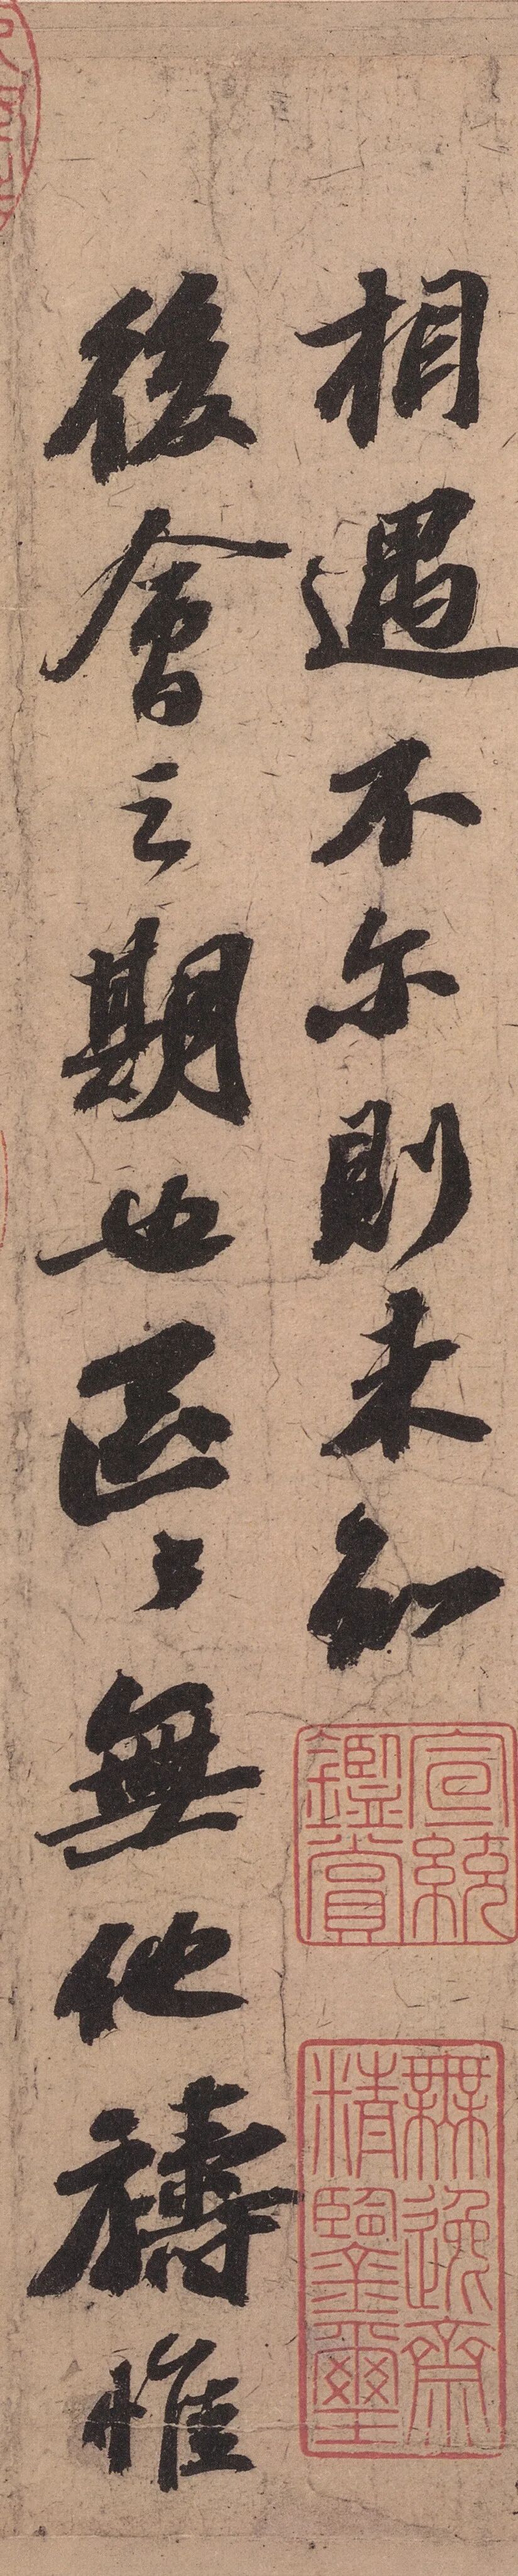 相遇不尔則未知
後會之期也區々無他禱惟
宣統
鑑賞
無逸齋
精鑒璽